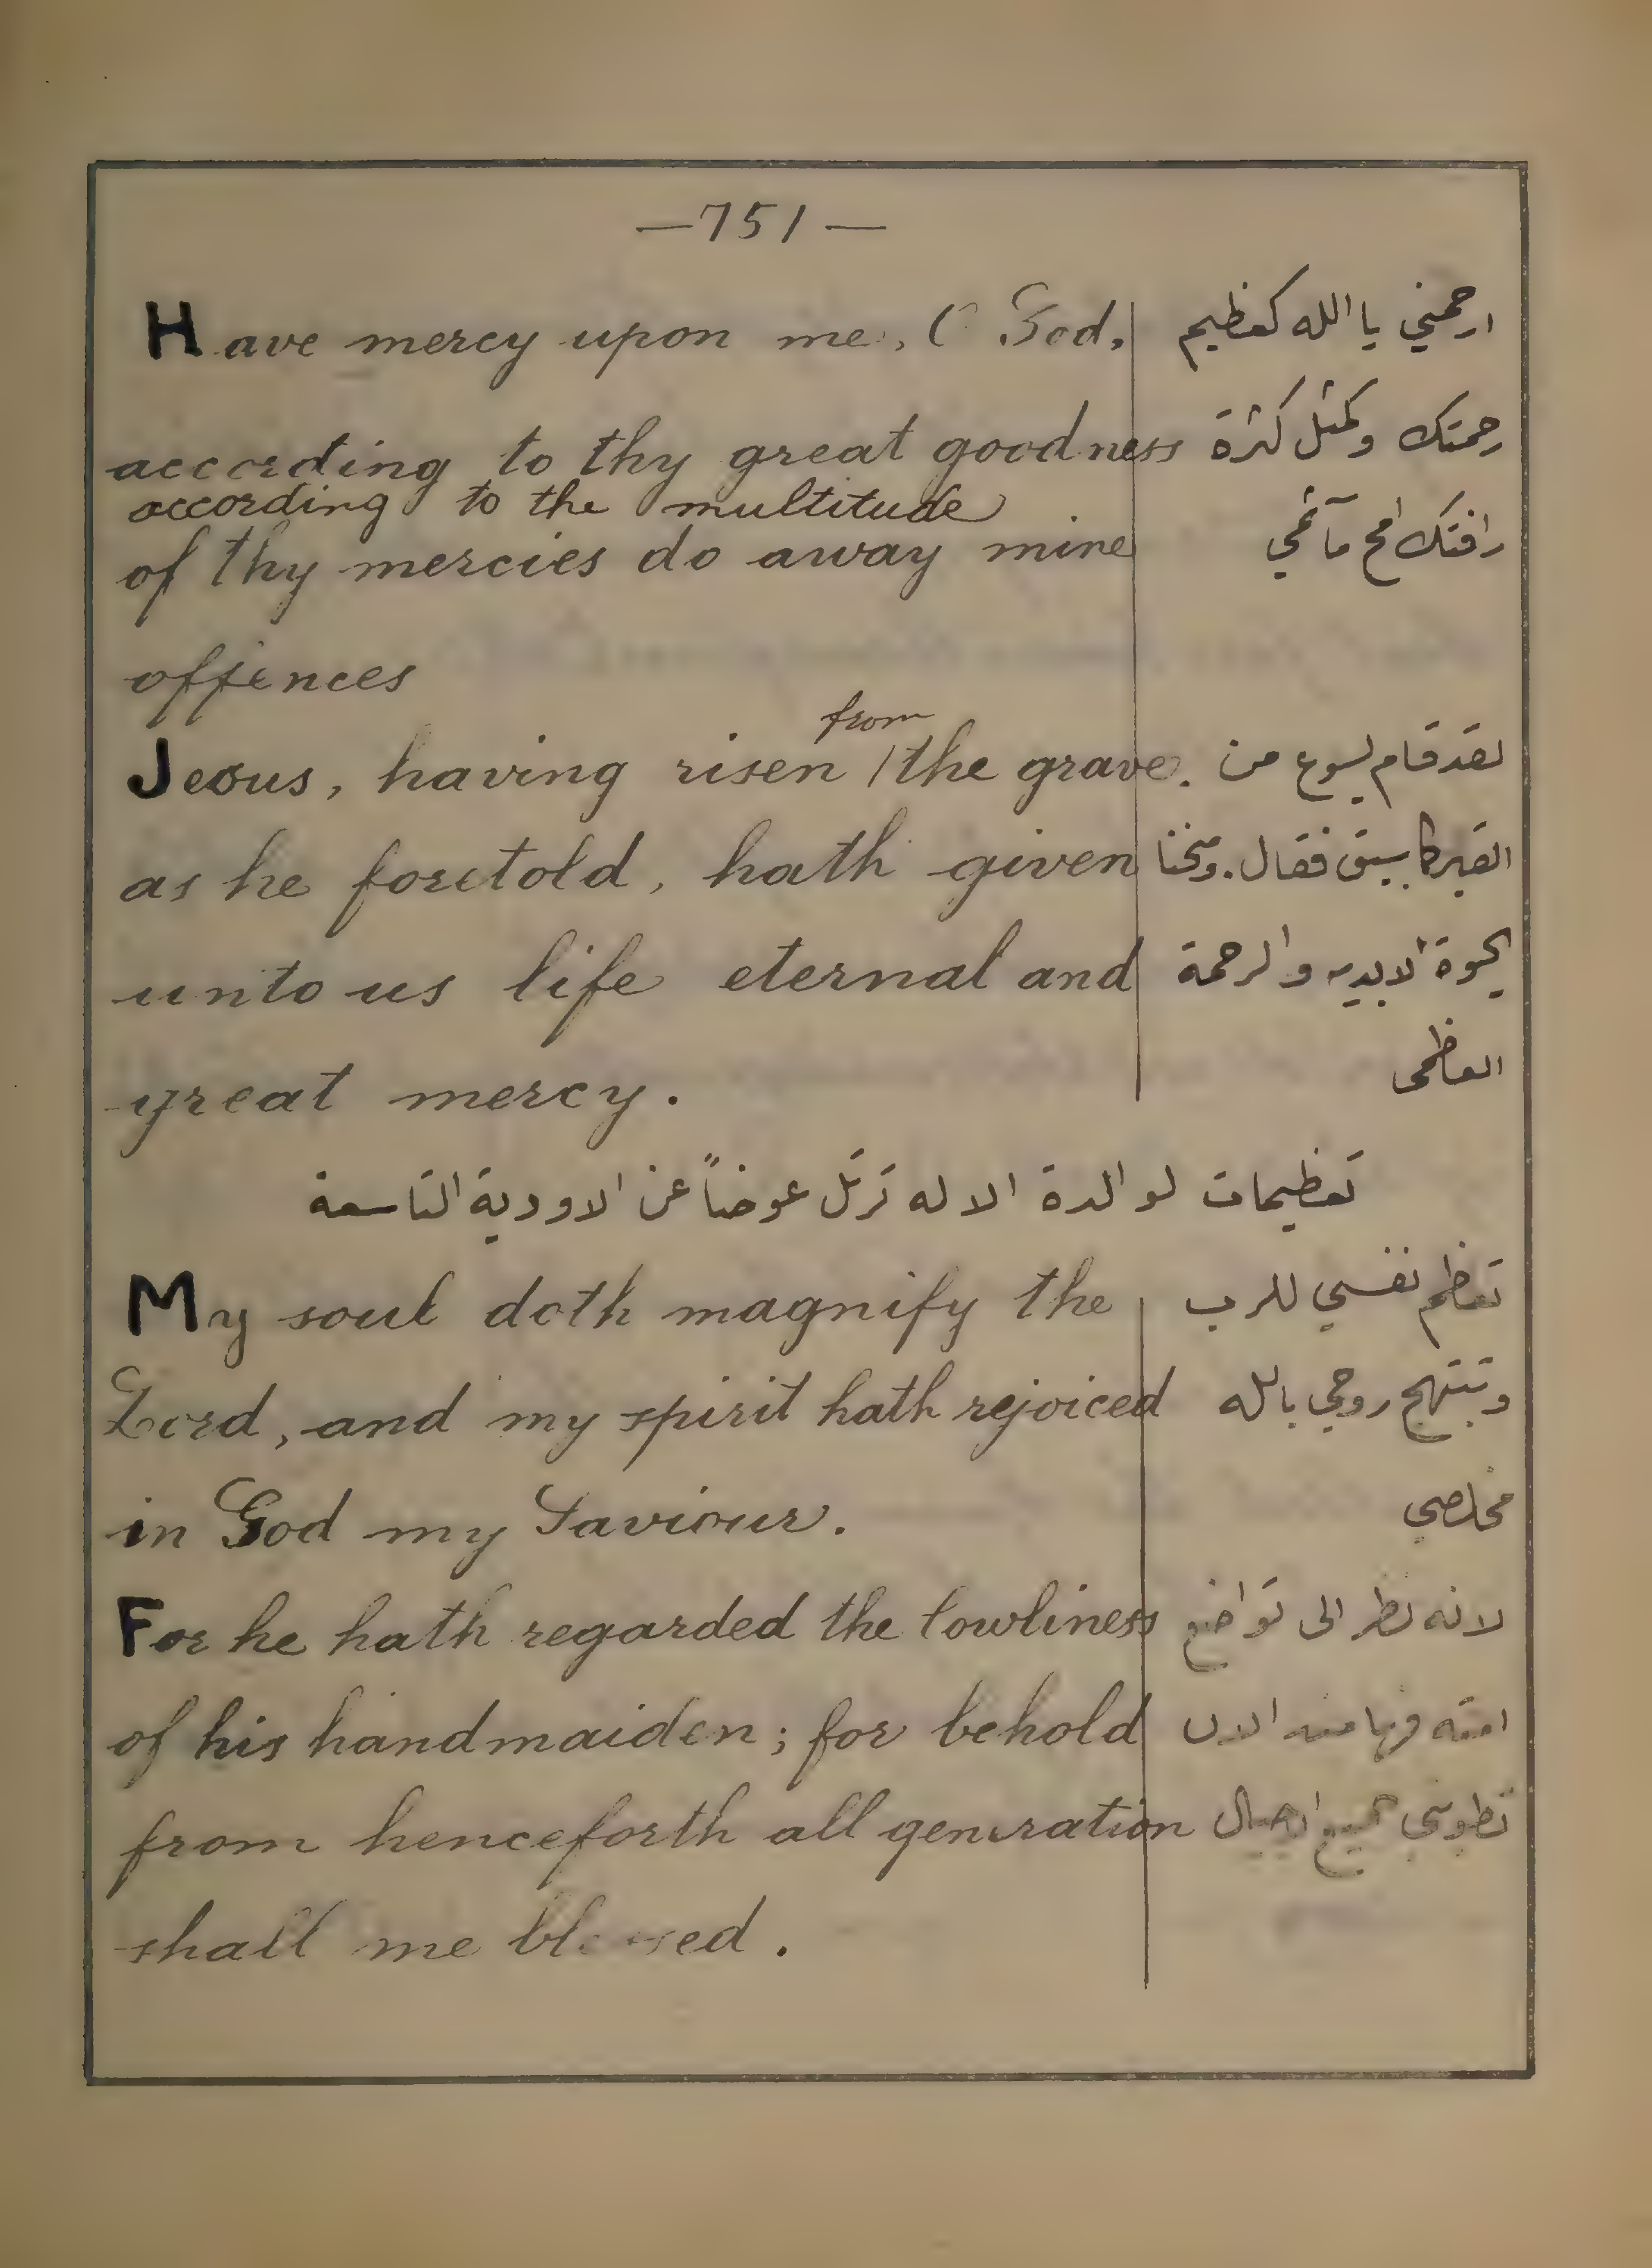 —751—
Have mercy upon me, O God,
ارحمني يا الله كعظيم
according to thy great goodness
رحمتك وكمثل كثرة
according to the multitude
of thy mercies do away mine
رافتك امح مآثمي
offences
from
Jesus, having risen / the grave.
لقد قام يسوع من
as he foretold, hath given
القبر كما سبق فقال. ومنحنا
unto us life eternal and
الحيوة الابديه والرحمة
great mercy.
العظمى
تعظيمات لوالدة الاله ترتل عوضاً عن الاودية التاسعة
My soul doth magnify the
تعظم نفسي للرب
Lord, and my spirit hath rejoiced
وتبتهج روحي بالله
in God my Saviour.
مخلصي
For he hath regarded the lowliness
لانه نظر الى تواضع
of his handmaiden; for behold
امته فها منذ الان
from henceforth all generation
تطوبني جميع اجيال
shall me blessed.